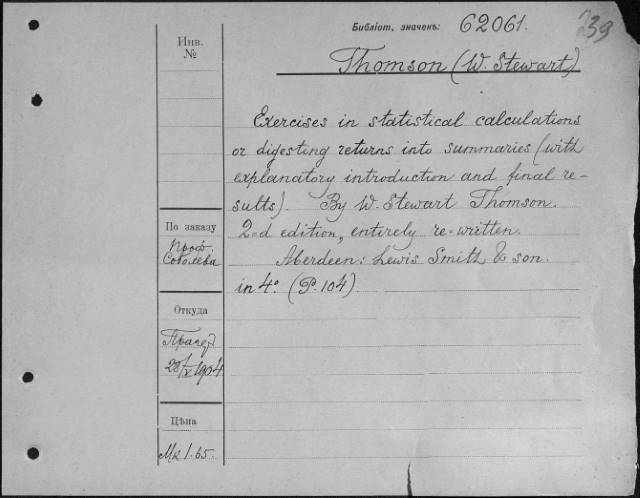 Библіот. значекъ: 62061.
239
Инв.
№
Thomson (W. Stewart)
Exercises in statistical calculations
or digesting returns into summaries (with
explanatory introduction and final re-
sults). By W. Stewart Thomson.
2nd edition, entirely re-written.
Aberdeen: Lewis Smith & son.
in 4º. (P. 104).
По заказу
Проф.
Соболева
Откуда
28/X 1904
Цѣна
Mk 1.65.